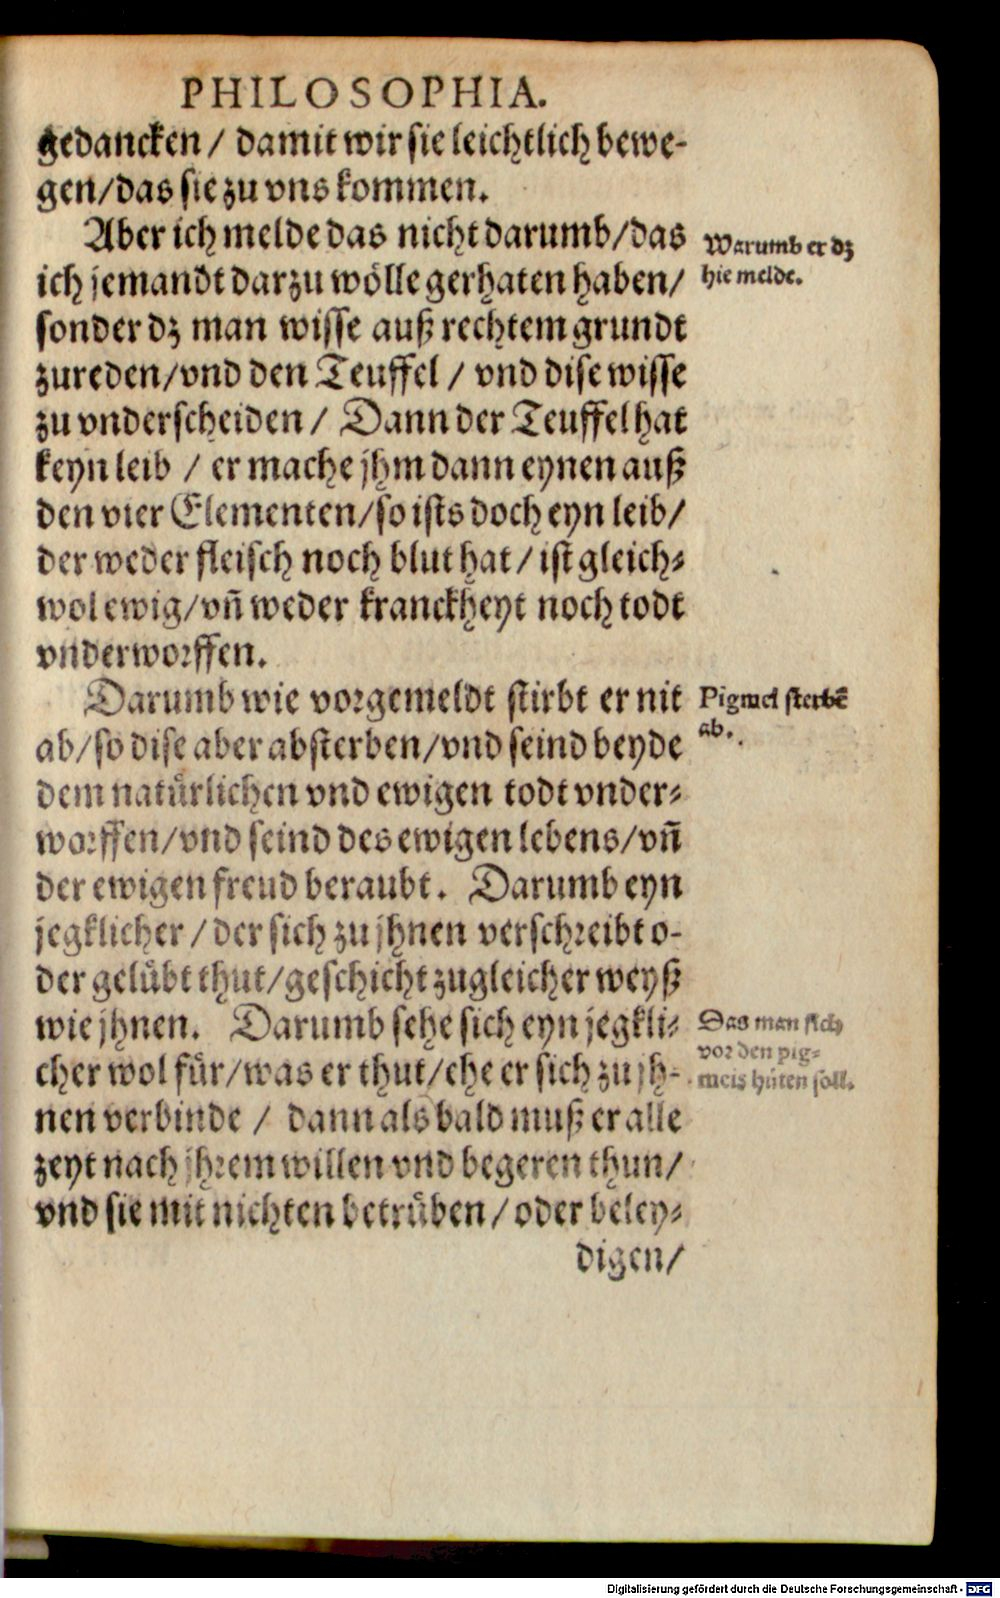 PHILOSOPHIA.
gedancken / damit wir sie leichtlich bewe-
gen/das sie zu vns kommen.
Aber ich melde das nicht darumb/das
ich jemandt darzu wölle gerhaten haben/
sonder dz man wisse auß rechtem grundt
zureden/vnd den Teuffel / vnd dise wisse
zu vnderscheiden / Dann der Teuffel hat
keyn leib / er mache jhm dann eynen auß
den vier Elementen/so ists doch eyn leib/
der weder fleisch noch blut hat / ist gleich-
wol ewig/vñ weder kranckheyt noch todt
vnderworffen.
Darumb wie vorgemeldt stirbt er nit
ab/so dise aber absterben/vnd seind beyde
dem natürlichen vnd ewigen todt vnder-
worffen/vnd seind des ewigen lebens/vñ
der ewigen freud beraubt. Darumb eyn
jegklicher / der sich zu jhnen verschreibt o-
der gelübt thut/geschicht zugleicher weyß
wie jhnen. Darumb sehe sich eyn jegkli-
cher wol für/was er thut/ehe er sich zu jh-
nen verbinde / dann als bald muß er alle
zeyt nach jhrem willen vnd begeren thun/
vnd sie mit nichten betrüben/oder beley-
digen/
Warumb er dz
hie melde.
Pigmei sterbẽ
ab.
Das man sich
vor den pig-
meis hüten soll.
Digitalisierung gefördert durch die Deutsche Forschungsgemeinschaft - DFG